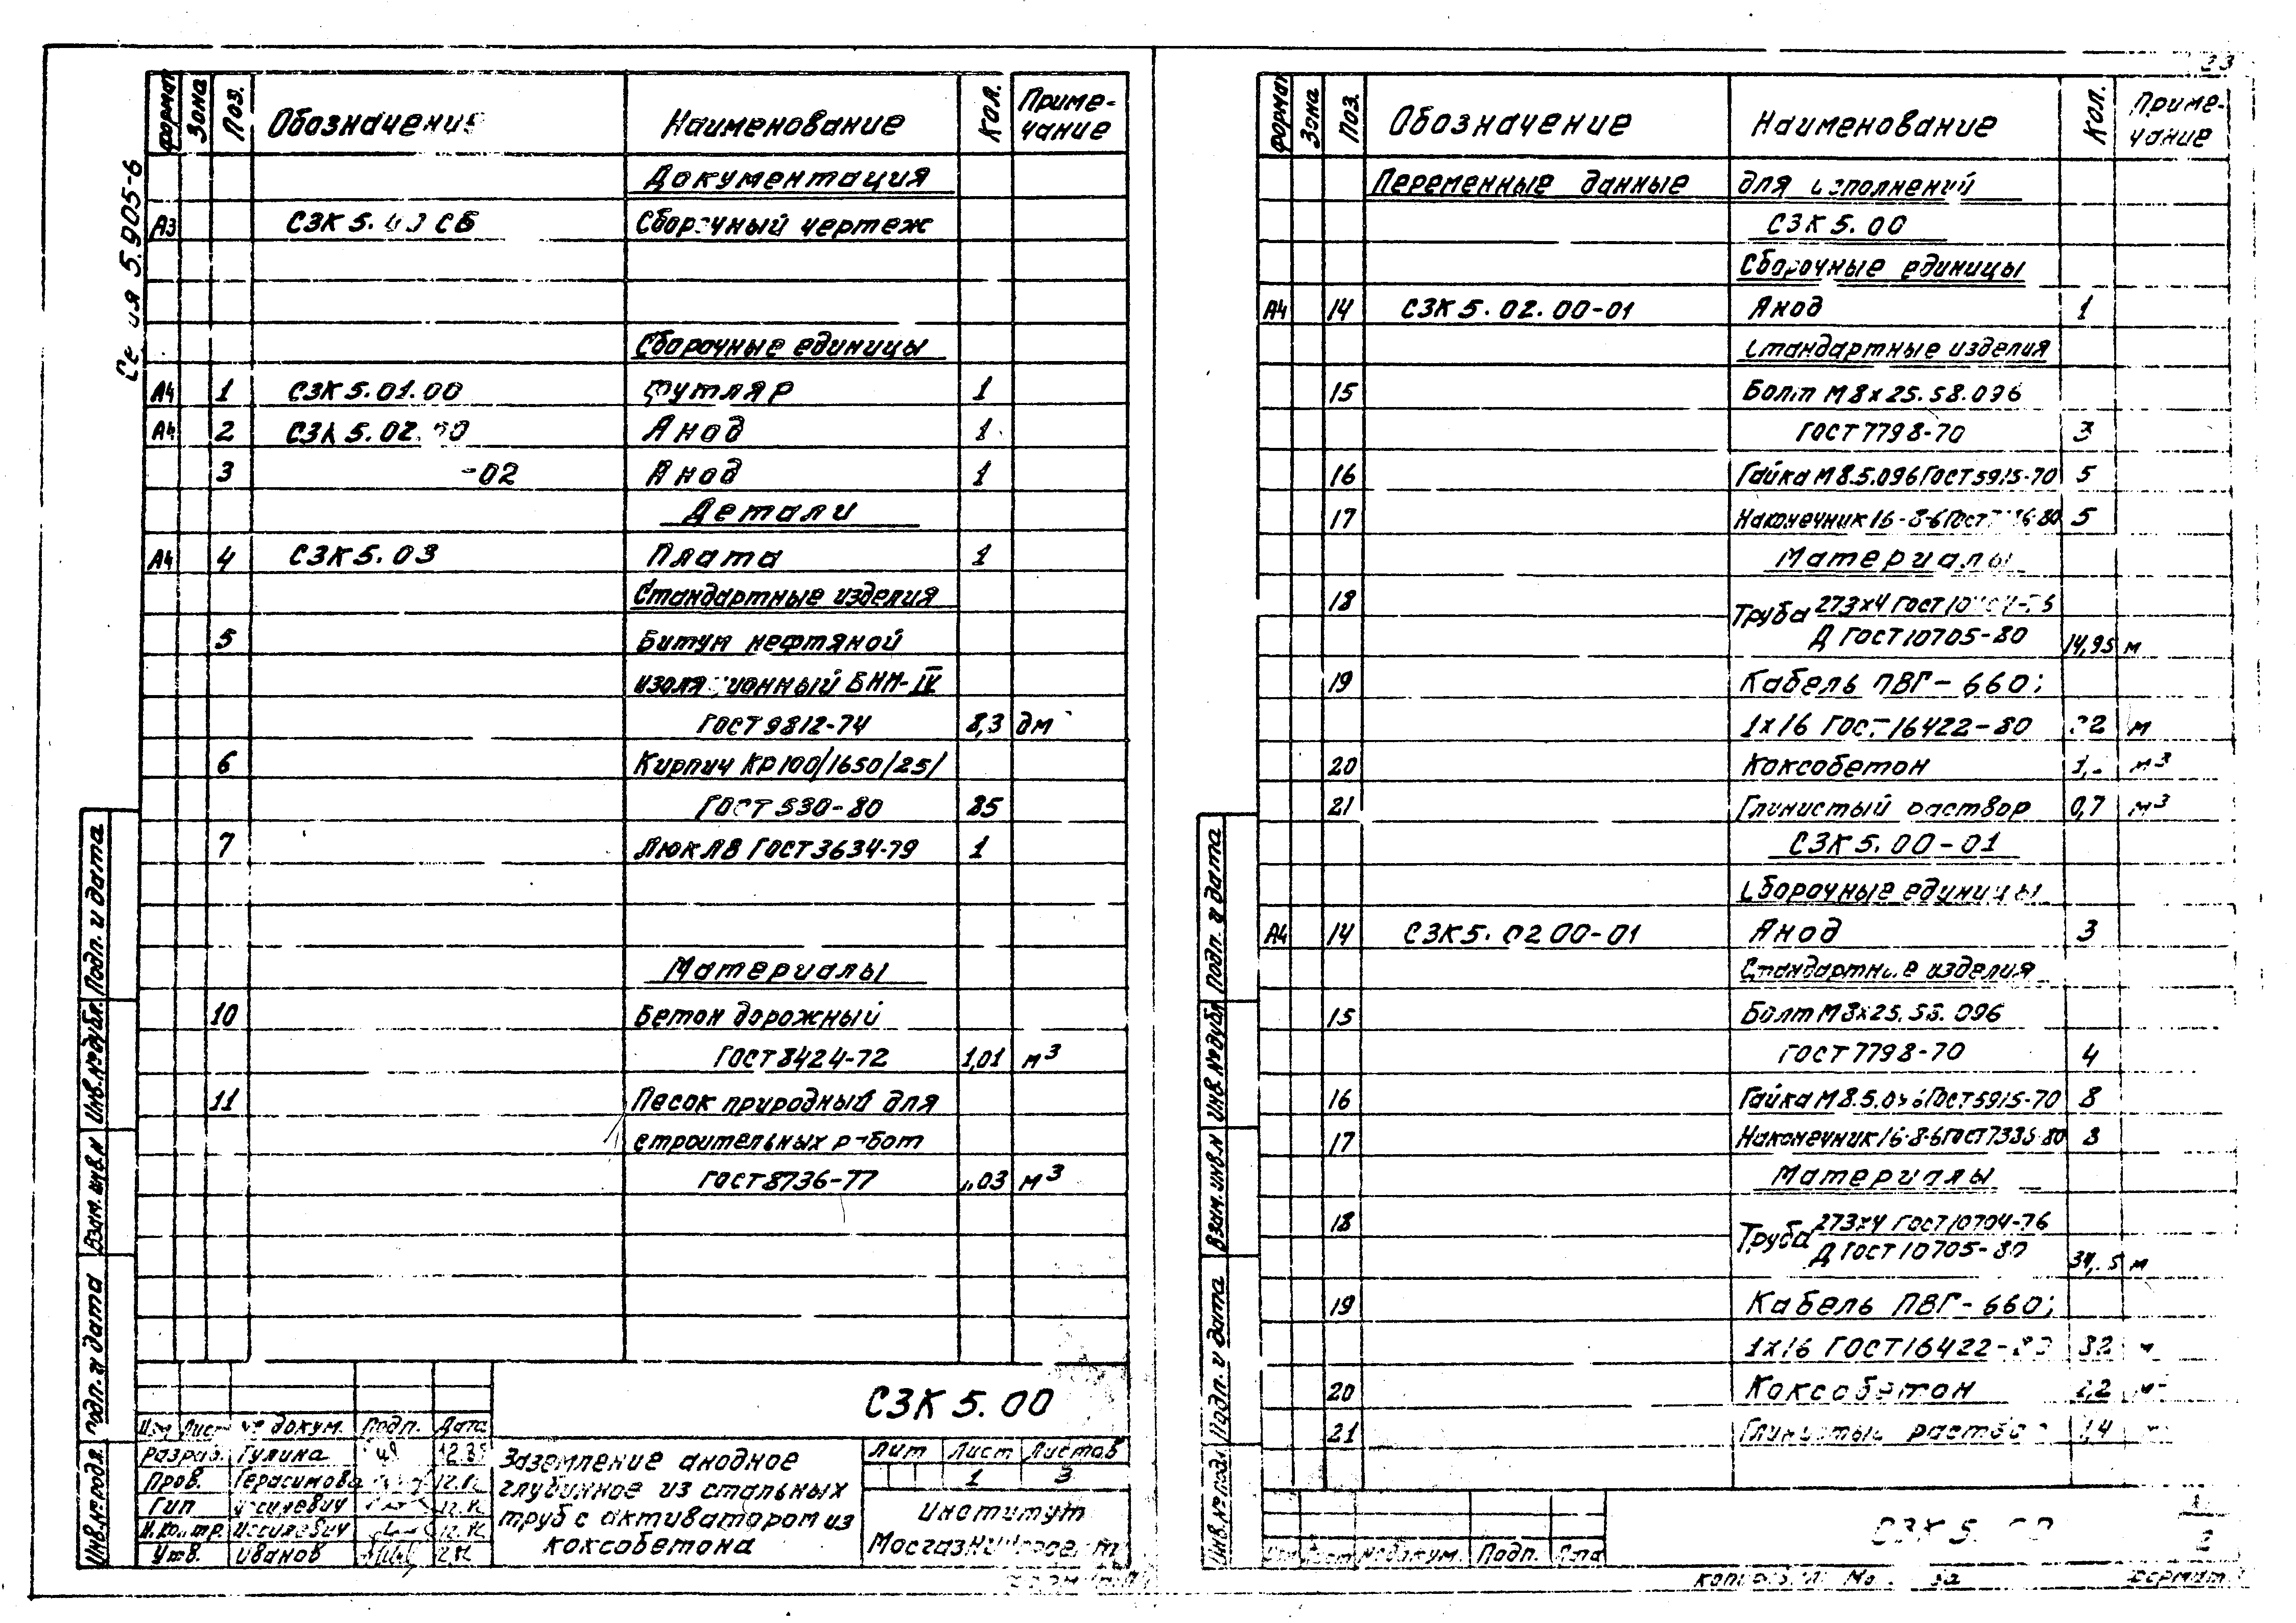 23
5.905-6
Формат Зона Поз. Обозначение Наименование Кол. Приме-
чание
Документация
А3 СЗК 5. СБ Сборочный чертеж
Сборочные единицы
А4 1 СЗК 5.01.00 Футляр 1
А4 2 СЗК 5.02.00 Анод 1
3 -02 Анод 1
Детали
А4 4 СЗК 5.03 Плата 1
Стандартные изделия
5 Битум нефтяной
изоляционный БНИ-IV
ГОСТ 9812-74 8,3 дм
6 Кирпич КР100/1650/25/
ГОСТ 530-80 85
7 Люк ЛВ ГОСТ 3634-79 1
Материалы
10 Бетон дорожный
ГОСТ 8424-72 1,01 м3
11 Песок природный для
строительных работ
ГОСТ 8736-77 м3
СЗК 5.00
Изм Лист № докум. Подп. Дата
Разраб. Гулина
Пров. Герасимова 12.82
ГИП 12.82
Н.контр. 12.82
Утв. Иванов
Заземление анодное
глубинное из стальных
труб с активатором из
коксобетона
Лит Лист Листов
1 3
Институт
МосгазНИИпроект
Инв.№ подл. Подп. и дата Взам. инв.№ Инв.№ дубл. Подп. и дата
Формат Зона Поз. Обозначение Наименование Кол. Приме-
чание
Переменные данные для исполнений
СЗК 5.00
Сборочные единицы
А4 14 СЗК 5.02.00-01 Анод 1
Стандартные изделия
15 Болт М8х25.58.096
ГОСТ 7798-70 3
16 Гайка М8.5.096 ГОСТ 5915-70 5
17 Наконечник 16-8-6 ГОСТ 5
Материалы
18 Труба 273х4 ГОСТ
Д ГОСТ 10705-80 14,95 м
19 Кабель ПВГ-660;
1х16 ГОСТ 16422-80 м
20 Коксобетон м3
21 Глинистый раствор 0,7 м3
СЗК 5.00-01
Сборочные единицы
А4 14 СЗК 5.02.00-01 Анод 3
Стандартные изделия
15 Болт М8х25.58.096
ГОСТ 7798-70 4
16 Гайка М8.5.096 ГОСТ 5915-70 8
17 Наконечник 16-8-6 ГОСТ 7386-80 8
Материалы
18 Труба 273х4 ГОСТ 10704-76
Д ГОСТ 10705-80 м
19 Кабель ПВГ-660;
1х16 ГОСТ 16422- 32 м
20 Коксобетон 2,2
21 Глинистый раствор
Изм Лист № докум. Подп. Дата
СЗК 5.
2
Формат
Инв.№ подл. Подп. и дата Взам. инв.№ Инв.№ дубл. Подп. и дата